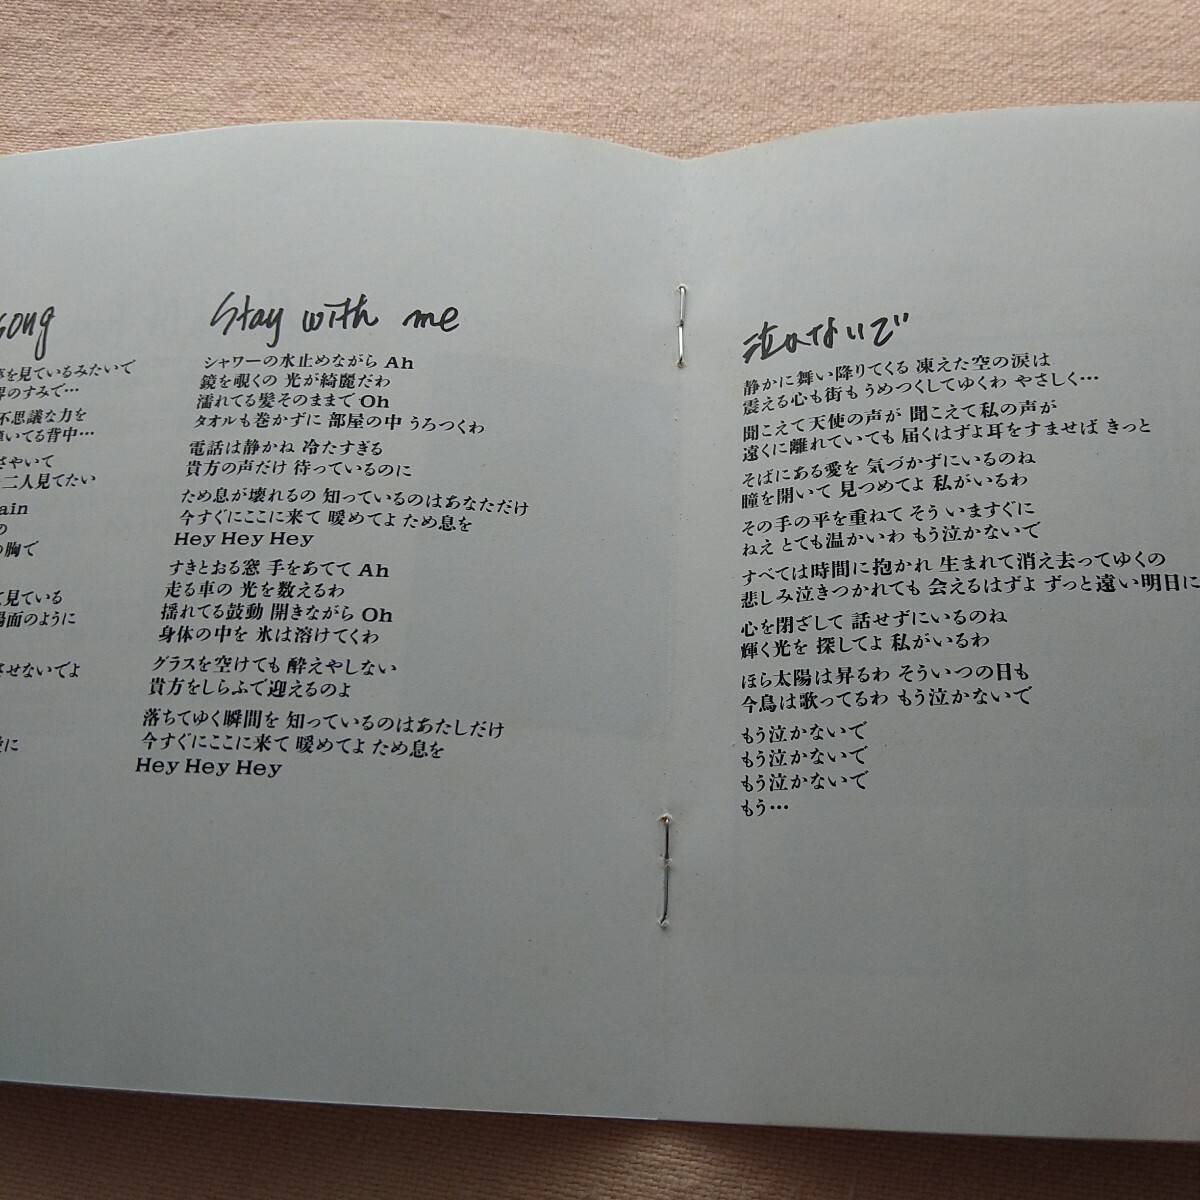 song
夢を見ているみたいで
界のすみで…
不思議な力を
いてる背中…
さやいて
二人見てたい
ain
の
の胸で
見ている
場面のように
させないでよ
に
Stay with me
シャワーの水止めながら Ah
鏡を覗くの 光が綺麗だわ
濡れてる髪そのままで Oh
タオルも巻かずに 部屋の中 うろつくわ
電話は静かね 冷たすぎる
貴方の声だけ 待っているのに
ため息が壊れるの 知っているのはあなただけ
今すぐにここに来て 暖めてよ ため息を
Hey Hey Hey
すきとおる窓 手をあてて Ah
走る車の 光を数えるわ
揺れてる鼓動 開きながら Oh
身体の中を 氷は溶けてくわ
グラスを空けても 酔えやしない
貴方をしらふで迎えるのよ
落ちてゆく瞬間を 知っているのはあたしだけ
今すぐにここに来て 暖めてよ ため息を
Hey Hey Hey
泣かないで
静かに舞い降りてくる 凍えた空の涙は
震える心も街も うめつくしてゆくわ やさしく…
聞こえて天使の声が 聞こえて私の声が
遠くに離れていても 届くはずよ耳をすませば きっと
そばにある愛を 気づかずにいるのね
瞳を開いて 見つめてよ 私がいるわ
その手の平を重ねて そう いますぐに
ねえ とても温かいわ もう泣かないで
すべては時間に抱かれ 生まれて消え去ってゆくの
悲しみ泣きつかれても 会えるはずよ ずっと遠い明日に
心を閉ざして 話せずにいるのね
輝く光を 探してよ 私がいるわ
ほら太陽は昇るわ そういつの日も
今鳥は歌ってるわ もう泣かないで
もう泣かないで
もう泣かないで
もう泣かないで
もう…